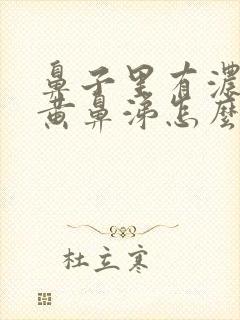 鼻子里有濃
黄鼻涕怎麽
杜立寒